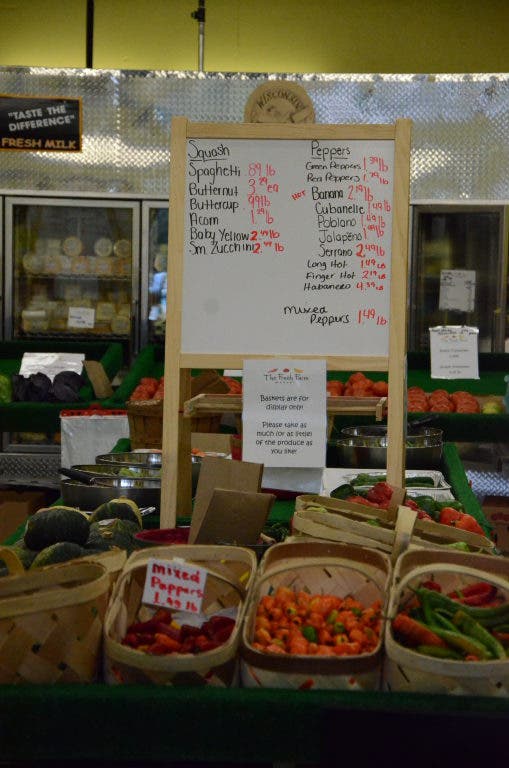 "TASTE THE
DIFFERENCE"
FRESH MILK
WISCONSIN
Squash
Spaghetti 89 lb
Butternut 3.29 ea
Buttercup .99 lb
Acorn 1.29 lb
Baby Yellow 2.49 lb
Sm. Zucchini 2.49 lb
Peppers
Green Peppers 1.39 lb
Red Peppers 1.79 lb
HOT Banana 2.19 lb
Cubanelle 1.49 lb
Poblano 1.49 lb
Jalapeño 1.49 lb
Serrano 2.49 lb
Long Hot 1.49 LB
Finger Hot 2.19 LB
Habanero 4.39 LB
Mixed
Peppers 1.49 lb
The Fresh Farm
MARKET
Baskets are for
display only!
Please take as
much (or as little)
of the produce as
you like!
Mixed
Peppers
1.49 lb